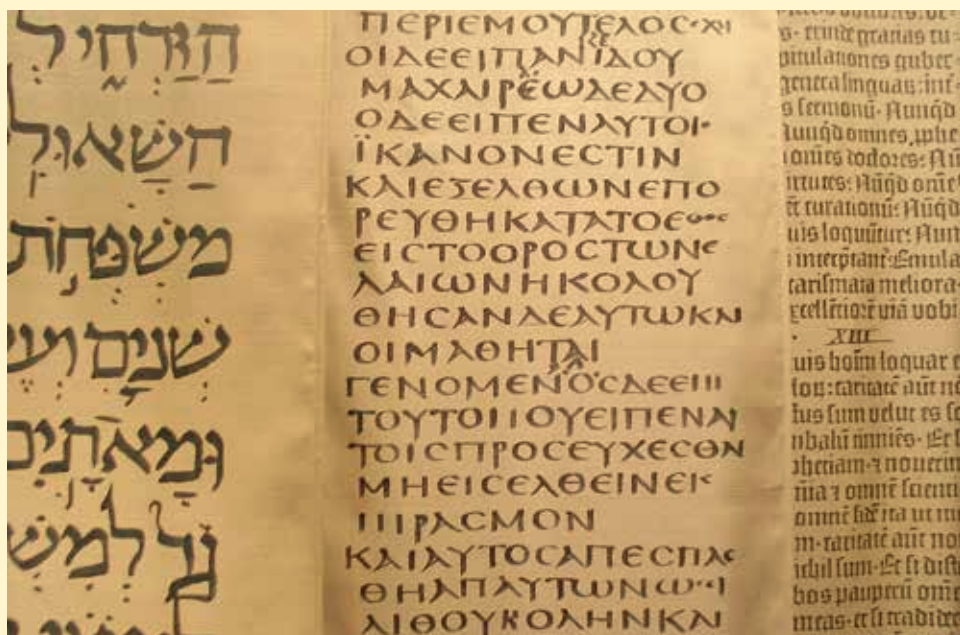 הַזַּרְחִי ל
הַשָּׁאוּלִ
מִשְׁפְּחֹת
שְׁנַיִם ועש
וּמָאתַיִם
גָד לְמִשְׁ
ΠΕΡΙΕΜΟΥΤΕΛΟϹ
ΟΙΔΕΕΙΠΑΝΪΔΟΥ
ΜΑΧΑΙΡΕΩΔΕΔΥΟ
ΟΔΕΕΙΠΕΝΑΥΤΟΙ·
ΪΚΑΝΟΝΕϹΤΙΝ
ΚΑΙΕΞΕΛΘΩΝΕΠΟ
ΡΕΥΘΗΚΑΤΑΤΟΕΘΟϹ
ΕΙϹΤΟΟΡΟϹΤΩΝΕ
ΛΑΙΩΝΗΚΟΛΟΥ
ΘΗϹΑΝΔΕΑΥΤΩΚΑΙ
ΟΙΜΑΘΗΤΑΙ
ΓΕΝΟΜΕΝΟϹΔΕΕΠΙ
ΤΟΥΤΟΠΟΥΕΙΠΕΝΑΥ
ΤΟΙϹΠΡΟϹΕΥΧΕϹΘΑΙ
ΜΗΕΙϹΕΛΘΕΙΝΕΙϹ
ΠΙΡΑϹΜΟΝ
ΚΑΙΑΥΤΟϹΑΠΕϹΠΑϹ
ΘΗΑΠΑΥΤΩΝΩϹΙ
ΛΙΘΟΥΒΟΛΗΝΚΑΙ
s· exinde gratias cu
opitulationes guber
genera linguar: int
s sermonū· Nunqd
Nunqd omnes, prophe
omēs doctores: Nū
irtutes: Nūqd omē
t curationū: Nūqd
uis loquūtur: Nun
interptant: Emula
carismata meliora·
xcellētiorē viā vobi
XIII
uis hoīm loquar e
lor: caritatē aūt nō
tus sum velut es so
nbalū tinniēs· Et
phetiam· ⁊ noverim
ria ⁊ omnē scienti
omnē fidē ita ut m
m· caritatē aūt no
ichil sum· Et si dist
bos pauperū omē
meas· et si tradider